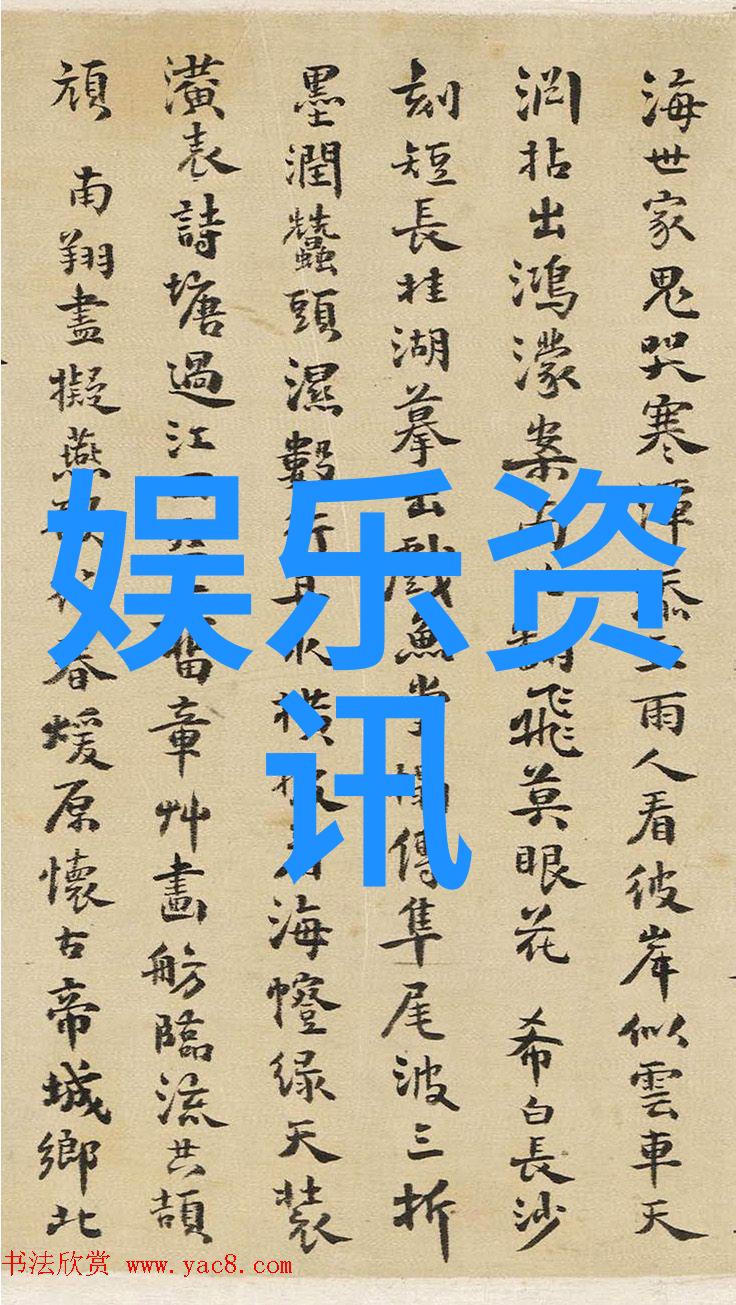 海世家鬼哭寒潭添雨人看彼岸似雲車天
拈出鴻濛案飛莫眼花 希白長沙
刻短長桂湖摹出戲魚堂傳隼尾波三折
墨潤蠶頭濕縠行橫看海幢綠天裝
潢表詩塘過江舊章艸畫舫臨流共頡
頏 南翔盡擬燕春煖原懷古帝城鄉北
娱乐资
讯
书法欣赏 www.yac8.com